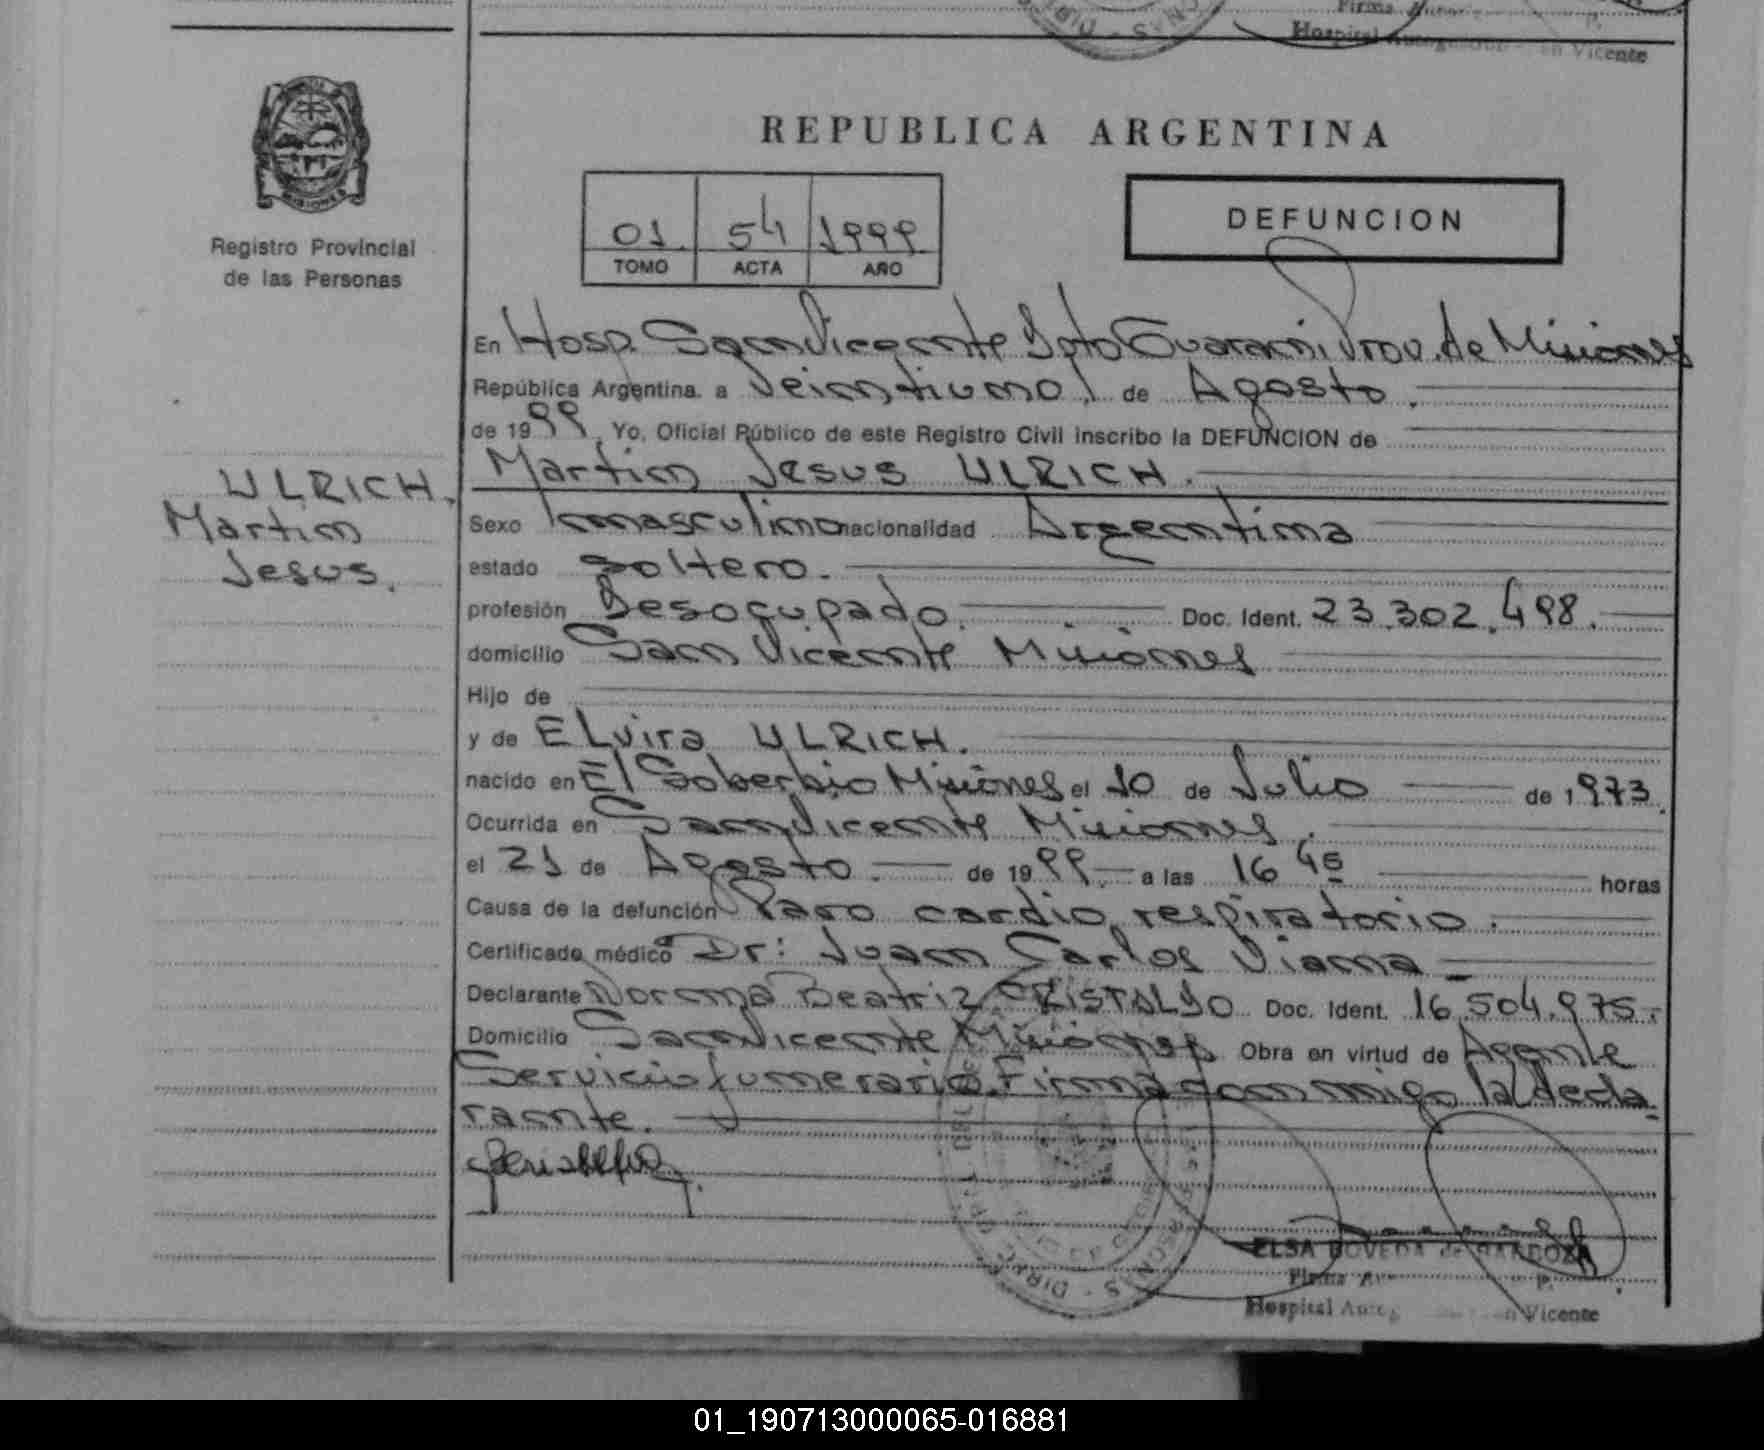 Hospital
Vicente
REPUBLICA ARGENTINA
MISIONES
Registro Provincial
de las Personas
01 54 1999
TOMO ACTA AÑO
DEFUNCION
En Hosp. San Vicente Dpto Guarani, Prov. de Misiones
República Argentina. a Veintiuno, de Agosto.
de 1999, Yo, Oficial Público de este Registro Civil inscribo la DEFUNCION de
Martin Jesus ULRICH.
ULRICH,
Martin
Jesus.
Sexo masculino nacionalidad Argentina
estado soltero.
profesión Desocupado. Doc. Ident. 23.302.498.
domicilio San Vicente Misiones
Hijo de
y de ELvira ULRICH.
nacido en El Soberbio Misiones el 10 de Julio de 1973.
Ocurrida en San Vicente Misiones.
el 21 de Agosto. de 1999. a las 16 45 horas
Causa de la defunción Paro cardio respiratorio.
Certificado médico Dr: Juan Carlos Viana
Declarante Norma Beatriz CRISTALDO Doc. Ident. 16.504.975.
Domicilio San Vicente Misiones Obra en virtud de Agente
Servicio funerario. Firma conmigo la decla
rante.
ELSA BOVEDA de
Firma
Hospital Vicente
01_190713000065-016881